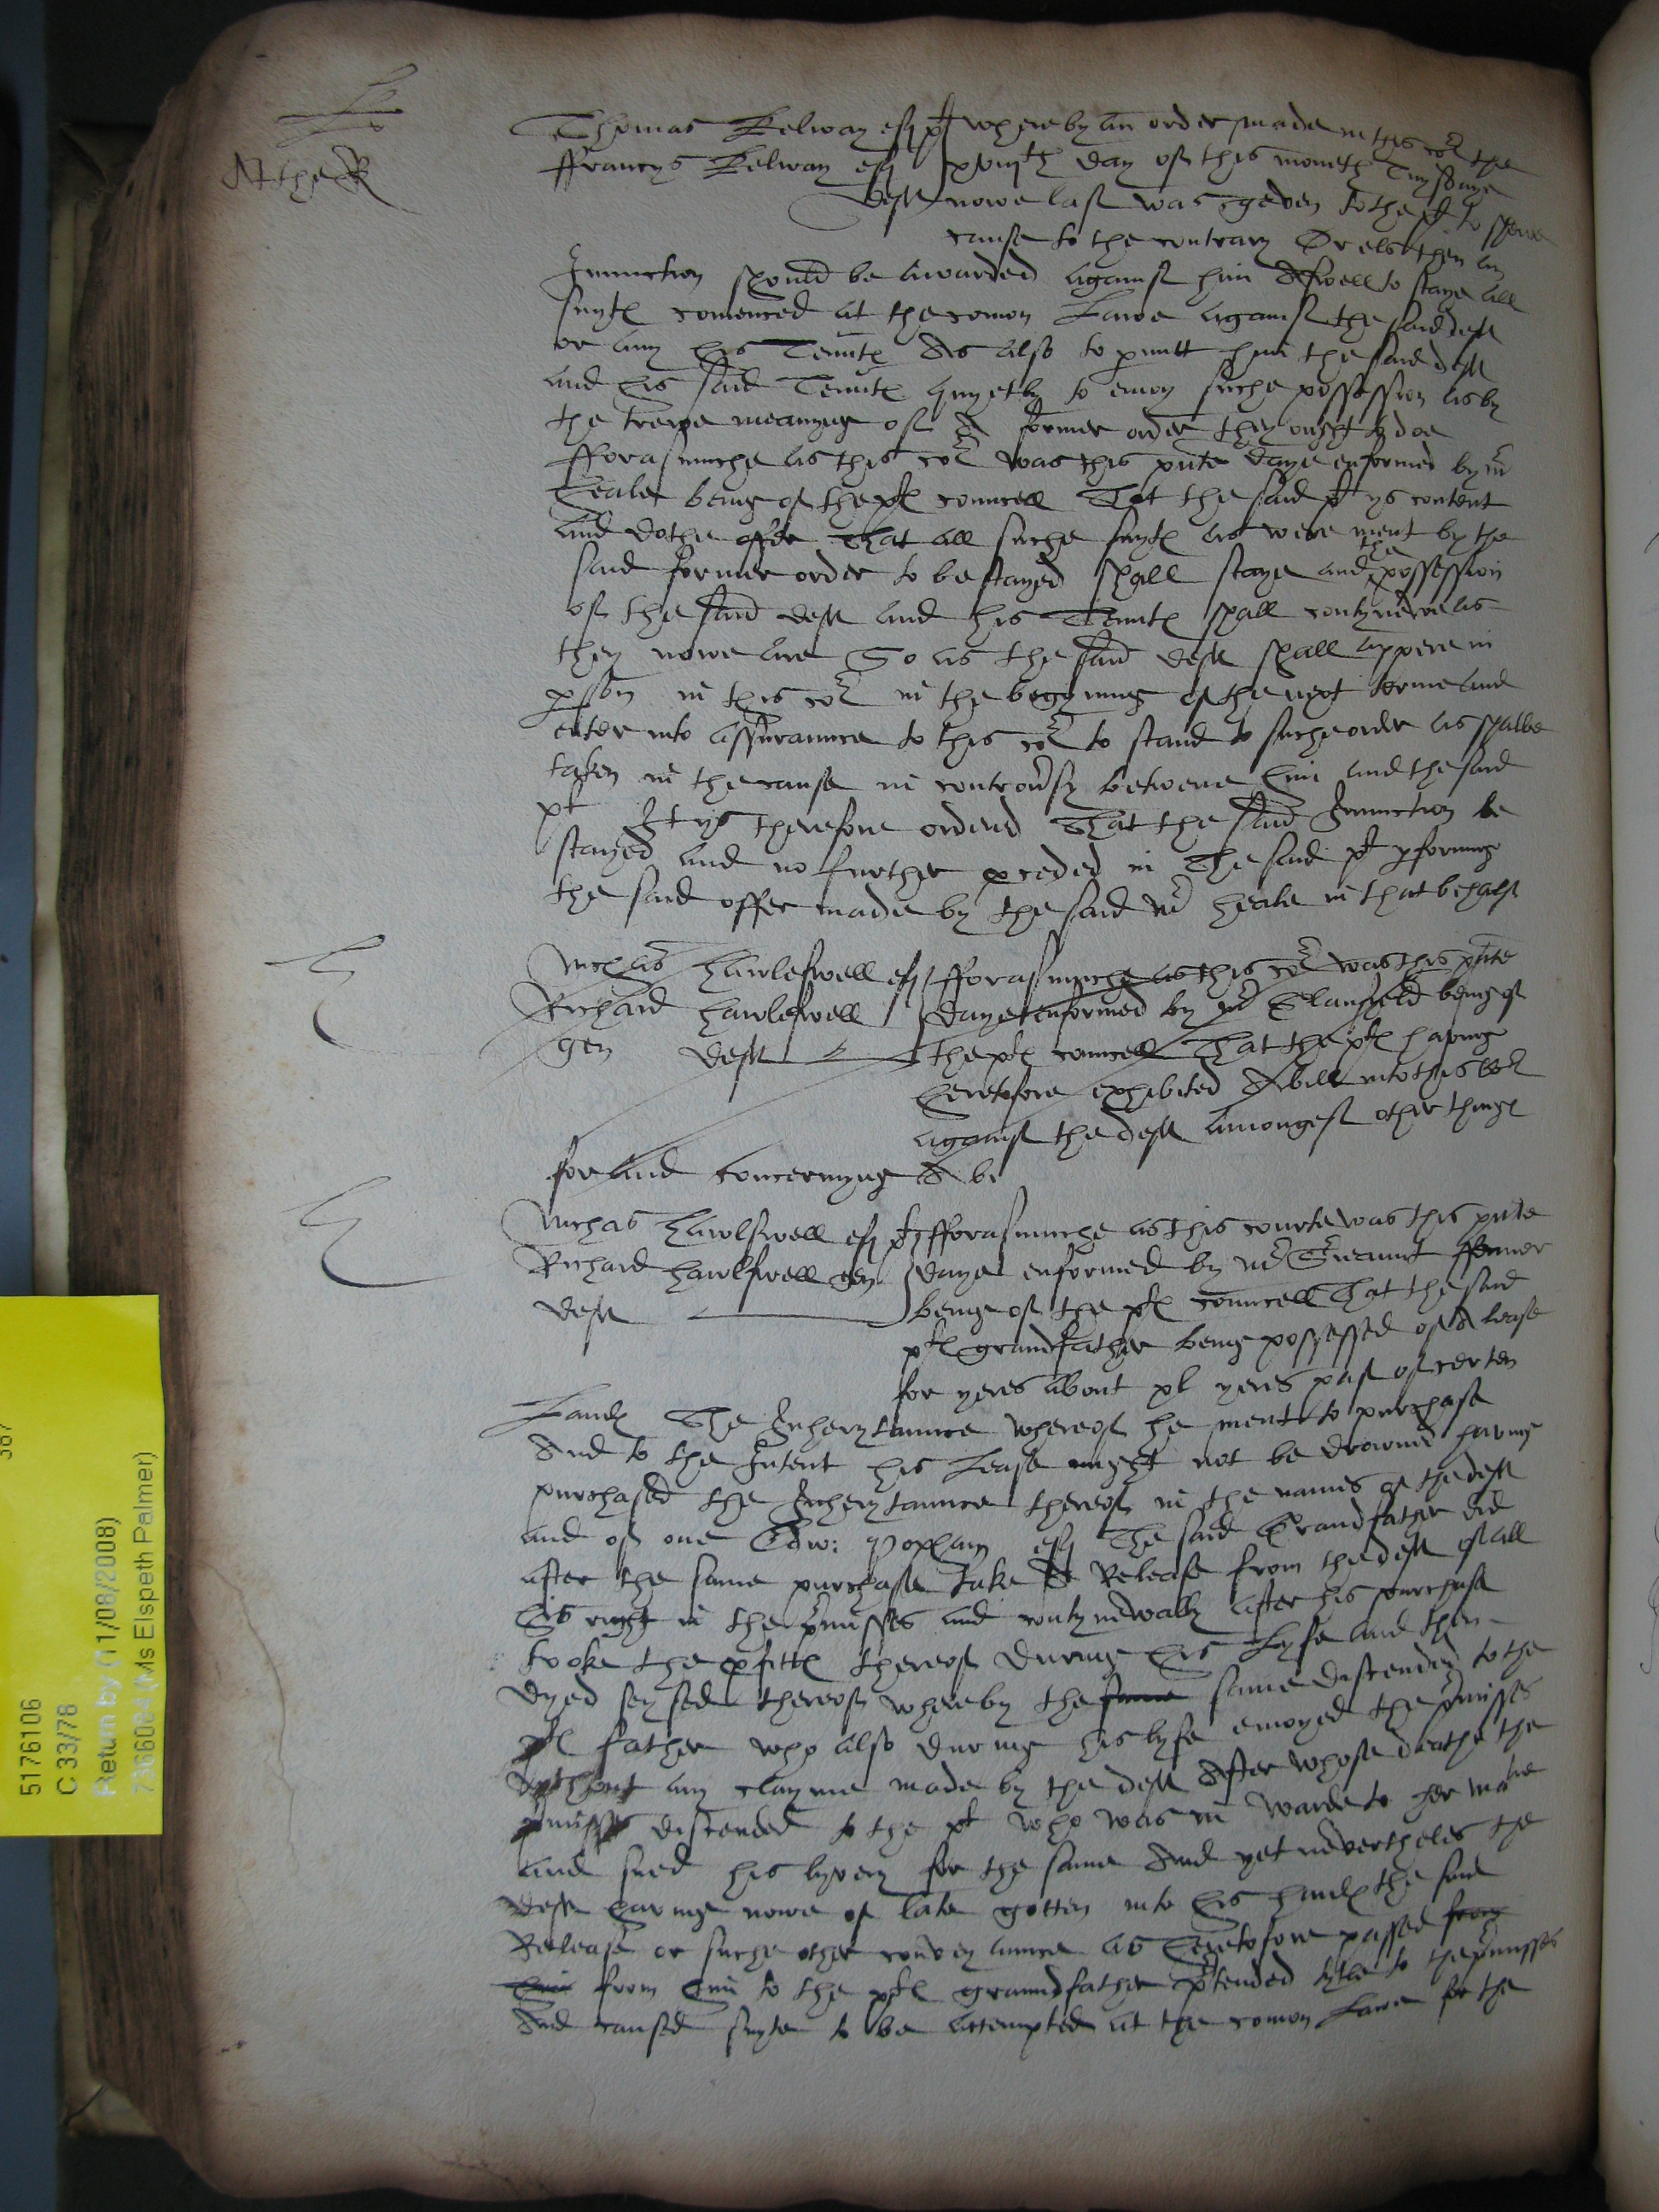 Thomas Kelway esq pt whereby an order made in this cor the
ffrancys Kelway esq xxviijth day of this moneth
deft nowe last was geven to the pt to shewe
cause to the contrary Or els then an
Iniunction should be awarded against him Aswell to staye all
suyts comenced at the comon Lawe against the said deft
or any his Tennts As also to pmitt him the said deft
and his said Tennts quyetly to enioy suche possession as by
the trewe meanyng of A former order they ought to doe
fforasmuche as this cor was this pnte daye enformed by mr
Heale being of the pts councell That the said pt ys content
and dothe offer That all suche suyts as were ment by the
said former order to be stayed shall staye and the possession
of the said deft and his Tennts shall contynewe as
they nowe are So as the said deft shall appere in
pson in this cor in the begynning of the next terme and
enter into assuraunce to this cor to stand to suche order as shalbe
taken in the cause in controusy betwene him and the said
pt It ys therefore ordered That the said Iniunction be
stayed and no further pceded in The said pt pforming
the said offer made by the said mr Heale in that behalf
Michas Hawleswell esq fforasmuche as this cor was this pnte
Richard Hawleswell daye enformed by mr Glanfield being of
gen deft the pts councell That the pts having
heretofore exhibited A bill into this cor
against the deft amongest other things
for and concernyng A be
Michas Hawlswell esq pt fforasmuche as this courte was this pnte
Richard Hawlswell gen daye enformed by mr Srieaunt ffenner
deft being of the pts councell That the said
pts grandfather being possessed of A lease
for yeres about xl yeres past of certen
Lands The Inherytaunce whereof he ment to purchase
And to the Intent his Lease might not be drowned having
purchased the Inherytaunce thereof in the names of the deft
and of one Edw: Popham esq The said Grandfather did
after the same purchase take A Release from the deft of all
his right in the pmisses and contynewally after his purchase
tooke the pfitts thereof during his Lyfe and then
dyed seysed thereof whereby the same same discended to the
pts father who also during his lyfe enioyed the pmisses
without any clayme made by the deft After whose deathe the
pmisses discended to the pt who was in warde to her matie
and sued his lyvery for the same And yet neverthelës the
deft having nowe of late gotten into his hands the said
Release or suche other conveyaunce as heretofore passed from
him from him to the pts graundfather ptended tytle to the pmisses
And caused suyte to be attempted at the comon Lawe for the
387
5176106
C 33/78
Return by (11/08/2008)
(Ms Elspeth Palmer)